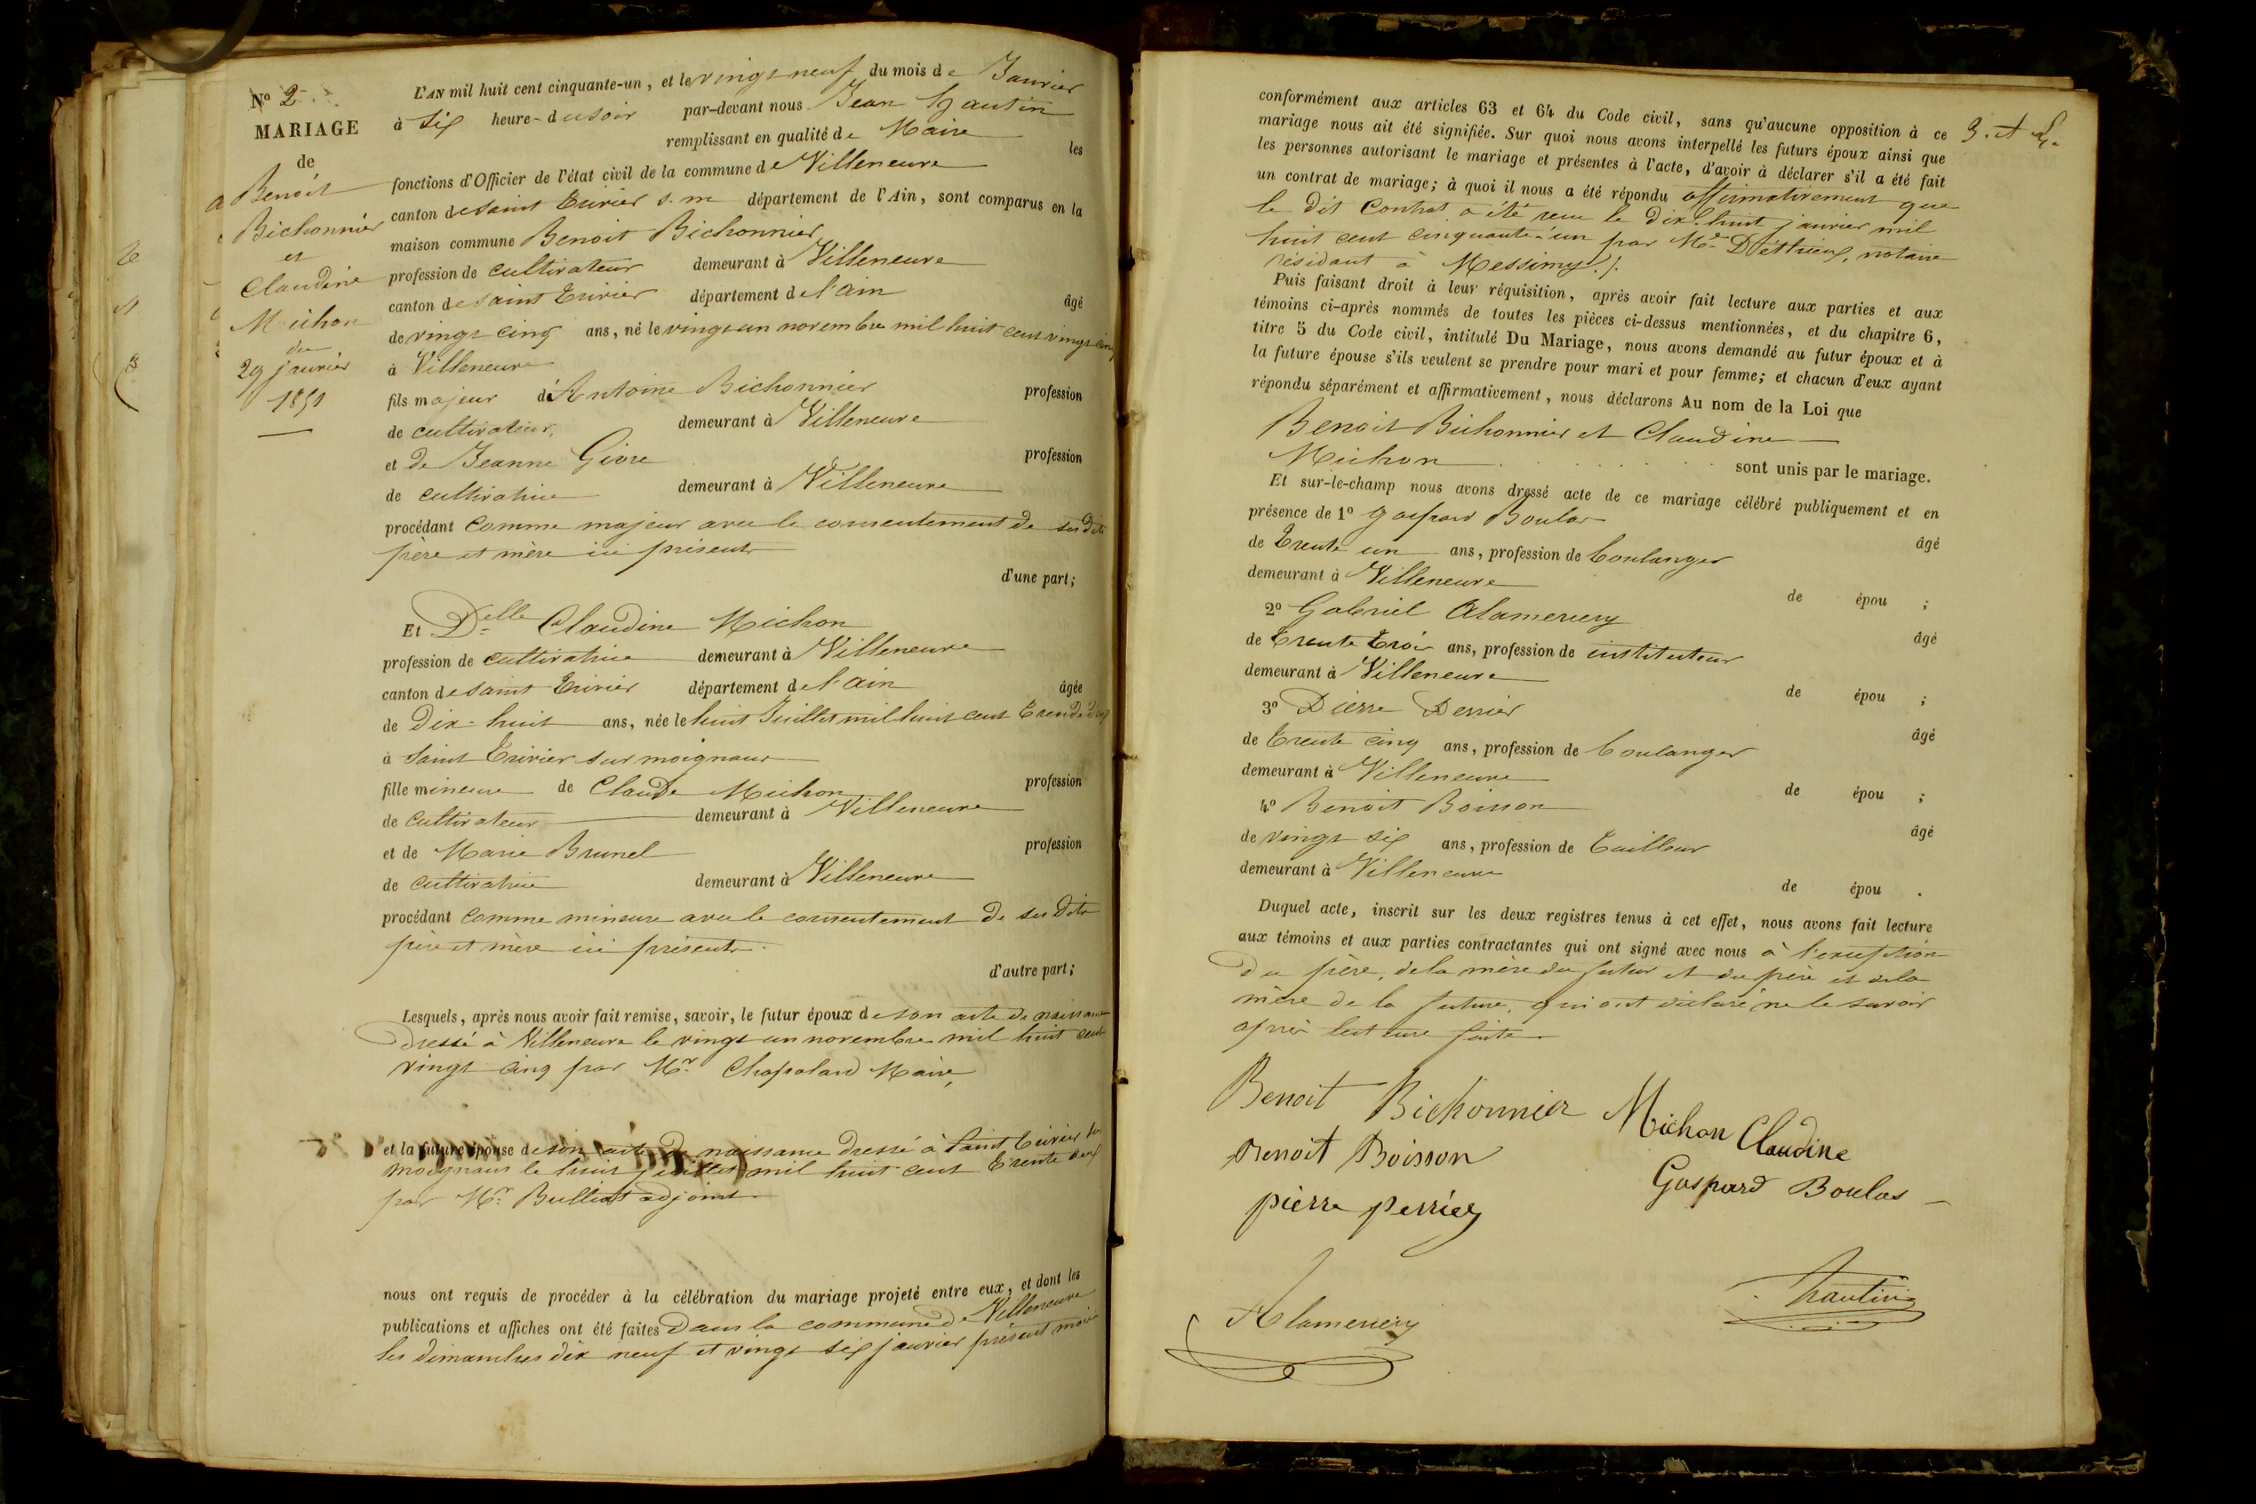 N° 2
MARIAGE
de
Benoit
Bichonnier
et
Claudine
Michon
du
29 janvier
1851
L'AN mil huit cent cinquante-un, et le vingt neuf du mois de Janvier
à six heure-du soir par-devant nous Jean hautin
remplissant en qualité de Maire les
fonctions d'Officier de l'état civil de la commune de Villeneuve
canton de saint Trivier s. m département de l'Ain, sont comparus en la
maison commune Benoit Bichonnier
profession de cultivateur demeurant à Villeneuve
canton de saint Trivier département de l'ain âgé
de vingt cinq ans, né le vingt un novembre mil huit cent vingt cinq
à Villeneuve
fils majeur d'Antoine Bichonnier profession
de cultivateur, demeurant à Villeneuve
et de Jeanne Givre profession
de cultivatrice demeurant à Villeneuve
procédant comme majeur avec le consentement de ses dits
père et mère ici présents
d'une part;
Et Delle Claudine Michon
profession de cultivatrice demeurant à Villeneuve
canton de saint Trivier département de l'ain âgée
de dix-huit ans, née le huit Juillet mil huit cent trente deux
à Saint Trivier sur moignans
fille mineure de Claude Michon profession
de cultivateur demeurant à Villeneuve
et de Marie Brunel profession
de cultivatrice demeurant à Villeneuve
procédant comme mineure avec le consentement de ses dits
père et mère ici présents.
d'autre part;
Lesquels, après nous avoir fait remise, savoir, le futur époux de son acte de naissance
dressé à Villeneuve le vingt un novembre mil huit cent
vingt cinq par Mr Chapolard Maire,
et la future épouse de son acte de naissance dressé à Saint Trivier sur
moignans le huit juillet mil huit cent trente deux
par Mr Bulliat adjoint
nous ont requis de procéder à la célébration du mariage projeté entre eux, et dont les
publications et affiches ont été faites dans la commune de Villeneuve
les dimanches dix neuf et vingt six janvier présent mois
conformément aux articles 63 et 64 du Code civil, sans qu'aucune opposition à ce
mariage nous ait été signifiée. Sur quoi nous avons interpellé les futurs époux ainsi que
les personnes autorisant le mariage et présentes à l'acte, d'avoir à déclarer s'il a été fait
un contrat de mariage; à quoi il nous a été répondu affirmativement que
le dit Contrat a été reçu le dix-huit janvier mil
huit cent cinquante-un par Me Déthieux, notaire
résidant à Messimy./.
Puis faisant droit à leur réquisition, après avoir fait lecture aux parties et aux
témoins ci-après nommés de toutes les pièces ci-dessus mentionnées, et du chapitre 6,
titre 5 du Code civil, intitulé Du Mariage, nous avons demandé au futur époux et à
la future épouse s'ils veulent se prendre pour mari et pour femme; et chacun d'eux ayant
répondu séparément et affirmativement, nous déclarons Au nom de la Loi que
Benoit Bichonnier et Claudine
Michon sont unis par le mariage.
Et sur-le-champ nous avons dressé acte de ce mariage célébré publiquement et en
présence de 1° Gaspard Boulas
âgé
de trente un ans, profession de boulanger
demeurant à Villeneuve
de épou ;
2° Gabriel Alamercery
âgé
de trente trois ans, profession de instituteur
demeurant à Villeneuve
de épou ;
3° Pierre Perrier
âgé
de trente cinq ans, profession de boulanger
demeurant à Villeneuve
de épou ;
4° Benoit Boisson
âgé
de vingt six ans, profession de tailleur
demeurant à Villeneuve
de épou .
Duquel acte, inscrit sur les deux registres tenus à cet effet, nous avons fait lecture
aux témoins et aux parties contractantes qui ont signé avec nous à l'exception
du père, de la mère du futur et du père et de la
mère de la future, qui ont déclaré ne le savoir
après lecture faite.
Benoit Bichonnier Michon Claudine
Benoit Boisson Gaspard Boulas
pierre perrier
Alamercery hautin